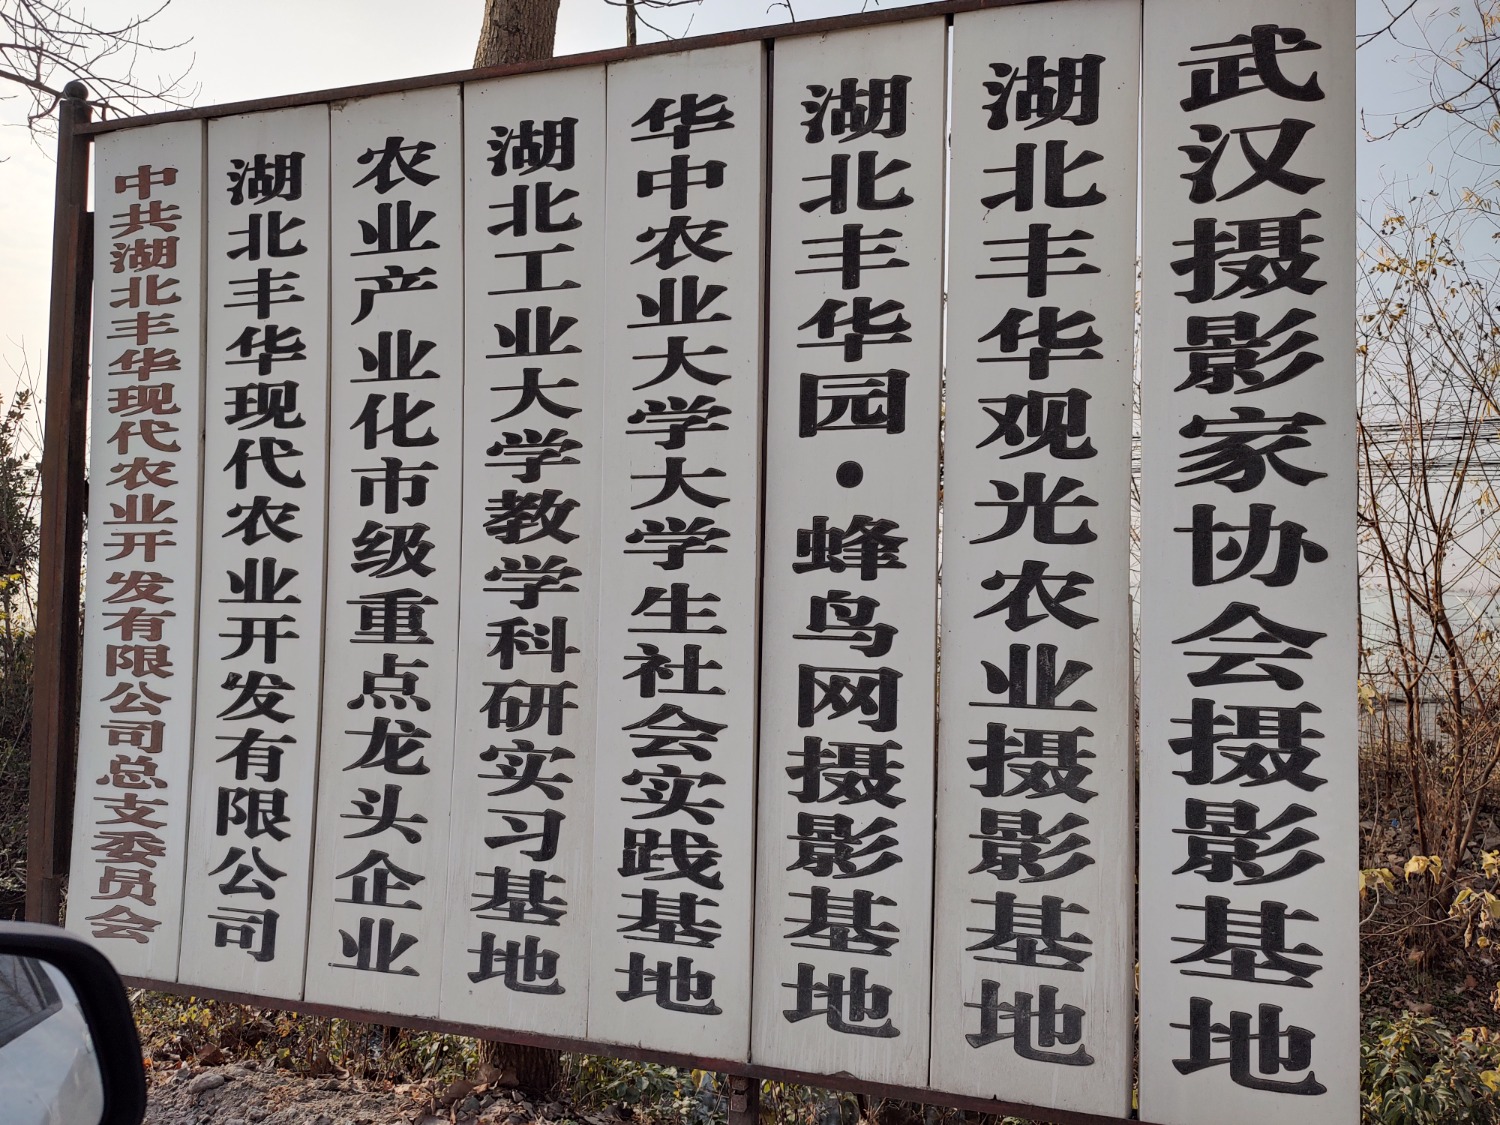 中共湖北丰华现代农业开发有限公司总支委员会
湖北丰华现代农业开发有限公司
农业产业化市级重点龙头企业
湖北工业大学教学科研实习基地
华中农业大学大学生社会实践基地
湖北丰华园·蜂鸟网摄影基地
湖北丰华观光农业摄影基地
武汉摄影家协会摄影基地